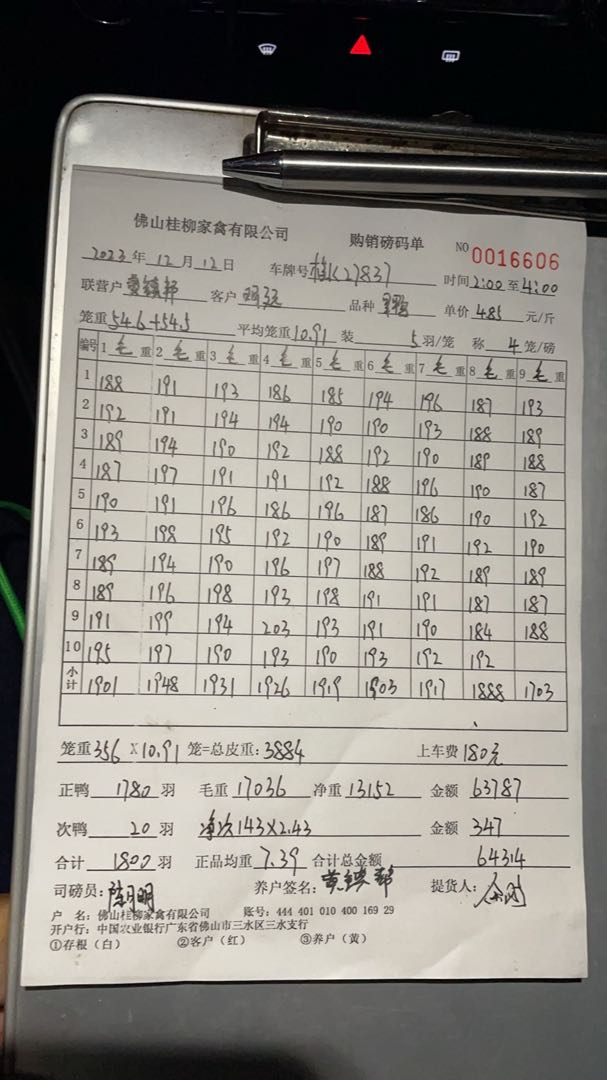 佛山桂柳家禽有限公司 购销磅码单 NO 0016606
2023年 12月 12日 车牌号 桂K27837 时间 2:00 至 4:00
联营户 客户 品种 单价 4.85 元/斤
笼重 54.6+54.5 平均笼重 10.91 装 5 羽/笼 称 4 笼/磅
编号 1 毛 重 2 毛 重 3 毛 重 4 毛 重 5 毛 重 6 毛 重 7 毛 重 8 毛 重 9 毛 重
1 188 191 193 186 185 194 196 187 193
2 192 191 194 194 190 190 193 188 189
3 189 194 190 192 188 192 190 189 188
4 187 197 191 191 192 188 196 190 187
5 190 191 196 186 196 187 186 190 192
6 193 198 195 192 190 189 191 192 190
7 189 194 190 196 197 188 192 189 189
8 189 196 198 193 198 191 191 187 187
9 191 199 194 203 193 191 190 184 188
10 195 197 190 193 190 193 192 192
小计 1901 1948 1931 1926 1919 1903 1917 1888 1703
笼重 356 X 10.91 笼=总皮重: 3884 上车费 180元
正鸭 1780 羽 毛重 17036 净重 13152 金额 63787
次鸭 20 羽 净次 143X2.43 金额 347
合计 1800 羽 正品均重 7.39 合计总金额 64314
司磅员: 养户签名: 提货人:
户 名: 佛山桂柳家禽有限公司 账号: 444 401 010 400 169 29
开户行: 中国农业银行广东省佛山市三水区三水支行
①存根(白) ②客户(红) ③养户(黄)